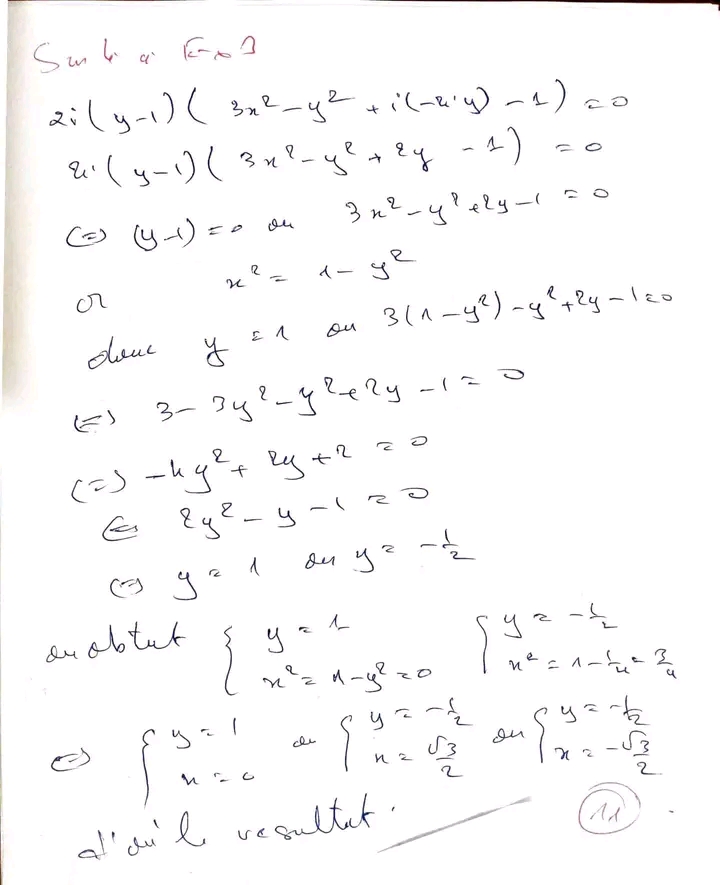 Suite Exo 3
2i(y-1)(3x² - y² + i(-2iy) - 1) = 0
2i(y-1)(3x² - y² + 2y - 1) = 0
(=) (y-1) = 0 ou 3x² - y² + 2y - 1 = 0
or x² = 1 - y²
donc y = 1 ou 3(1 - y²) - y² + 2y - 1 = 0
(=) 3 - 3y² - y² + 2y - 1 = 0
(=) -4y² + 2y + 2 = 0
(=) 2y² - y - 1 = 0
(=) y = 1 ou y = -1/2
on obtient { y = 1 { y = -1/2
x² = 1 - y² = 0 x² = 1 - 1/4 = 3/4
(=) { y = 1 ou { y = -1/2 ou { y = -1/2
x = 0 x = √3/2 x = -√3/2
d'où le resultat.
11